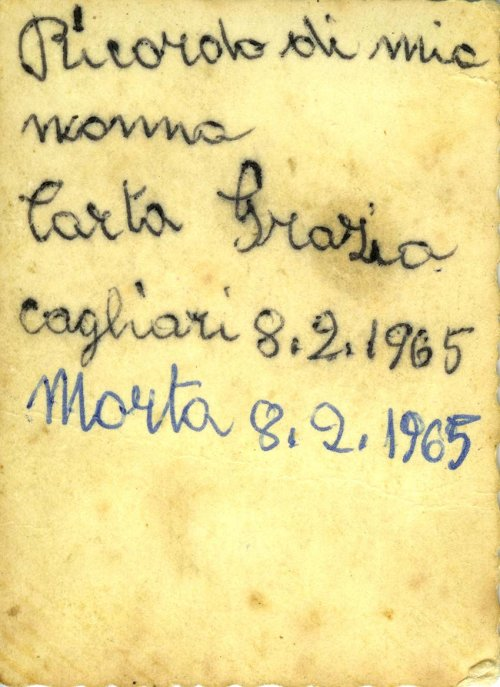 Ricordo di mia
nonna
Carta Grazia
cagliari 8.2.1965
Morta 8.2.1965